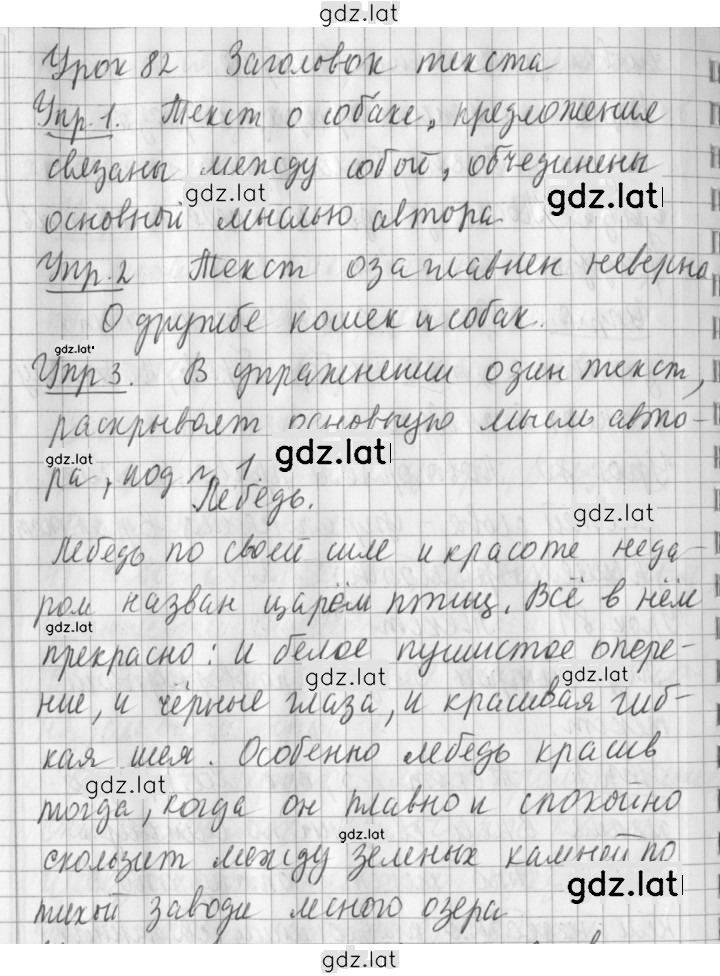 gdz.lat
Урок 82 Заголовок текста
Упр.1. Текст о собаке, предложения
связаны между собой, объединены
gdz.lat gdz.lat
основной мыслью автора.
Упр.2 Текст озаглавлен неверно
О дружбе кошек и собак.
gdz.lat
Упр 3. В упражнении один текст,
раскрывает основную мысль авто-
gdz.lat gdz.lat
ра, под № 1.
Лебедь.
gdz.lat
Лебедь по своей силе и красоте неда-
ром назван царём птиц. Всё в нём
gdz.lat
прекрасно: и белое пушистое опере-
gdz.lat gdz.lat
ние, и чёрные глаза, и красивая гиб-
кая шея. Особенно лебедь красив
gdz.lat
тогда, когда он плавно и спокойно
gdz.lat
скользит между зеленых камышей по
gdz.lat
тихой заводи лесного озера
gdz.lat